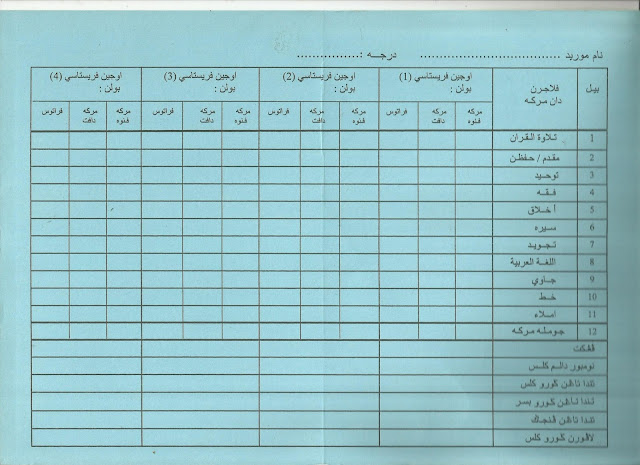 نام موريد .................................. درجـــه : ................
بيل
فلاجرن
دان مركه
اوجين فريستاسي (1)
بولن :
اوجين فريستاسي (2)
بولن :
اوجين فريستاسي (3)
بولن :
اوجين فريستاسي (4)
بولن :
مركه
فنوه
مركه
دافت
فراتوس
مركه
فنوه
مركه
دافت
فراتوس
مركه
فنوه
مركه
دافت
فراتوس
مركه
فنوه
مركه
دافت
فراتوس
1 تلاوة القران
2 مقدم / حفظن
3 توحيد
4 فقه
5 أخلاق
6 سيره
7 تجويد
8 اللغة العربية
9 جاوي
10 خط
11 املاء
12 جومله مركه
ڤڠكت
نومبور دالم كلس
تندا تاڠن ݢورو كلس
تندا تاڠن ݢورو بسر
تندا تاڠن ڤنجاݢ
لاڤورن ݢورو كلس